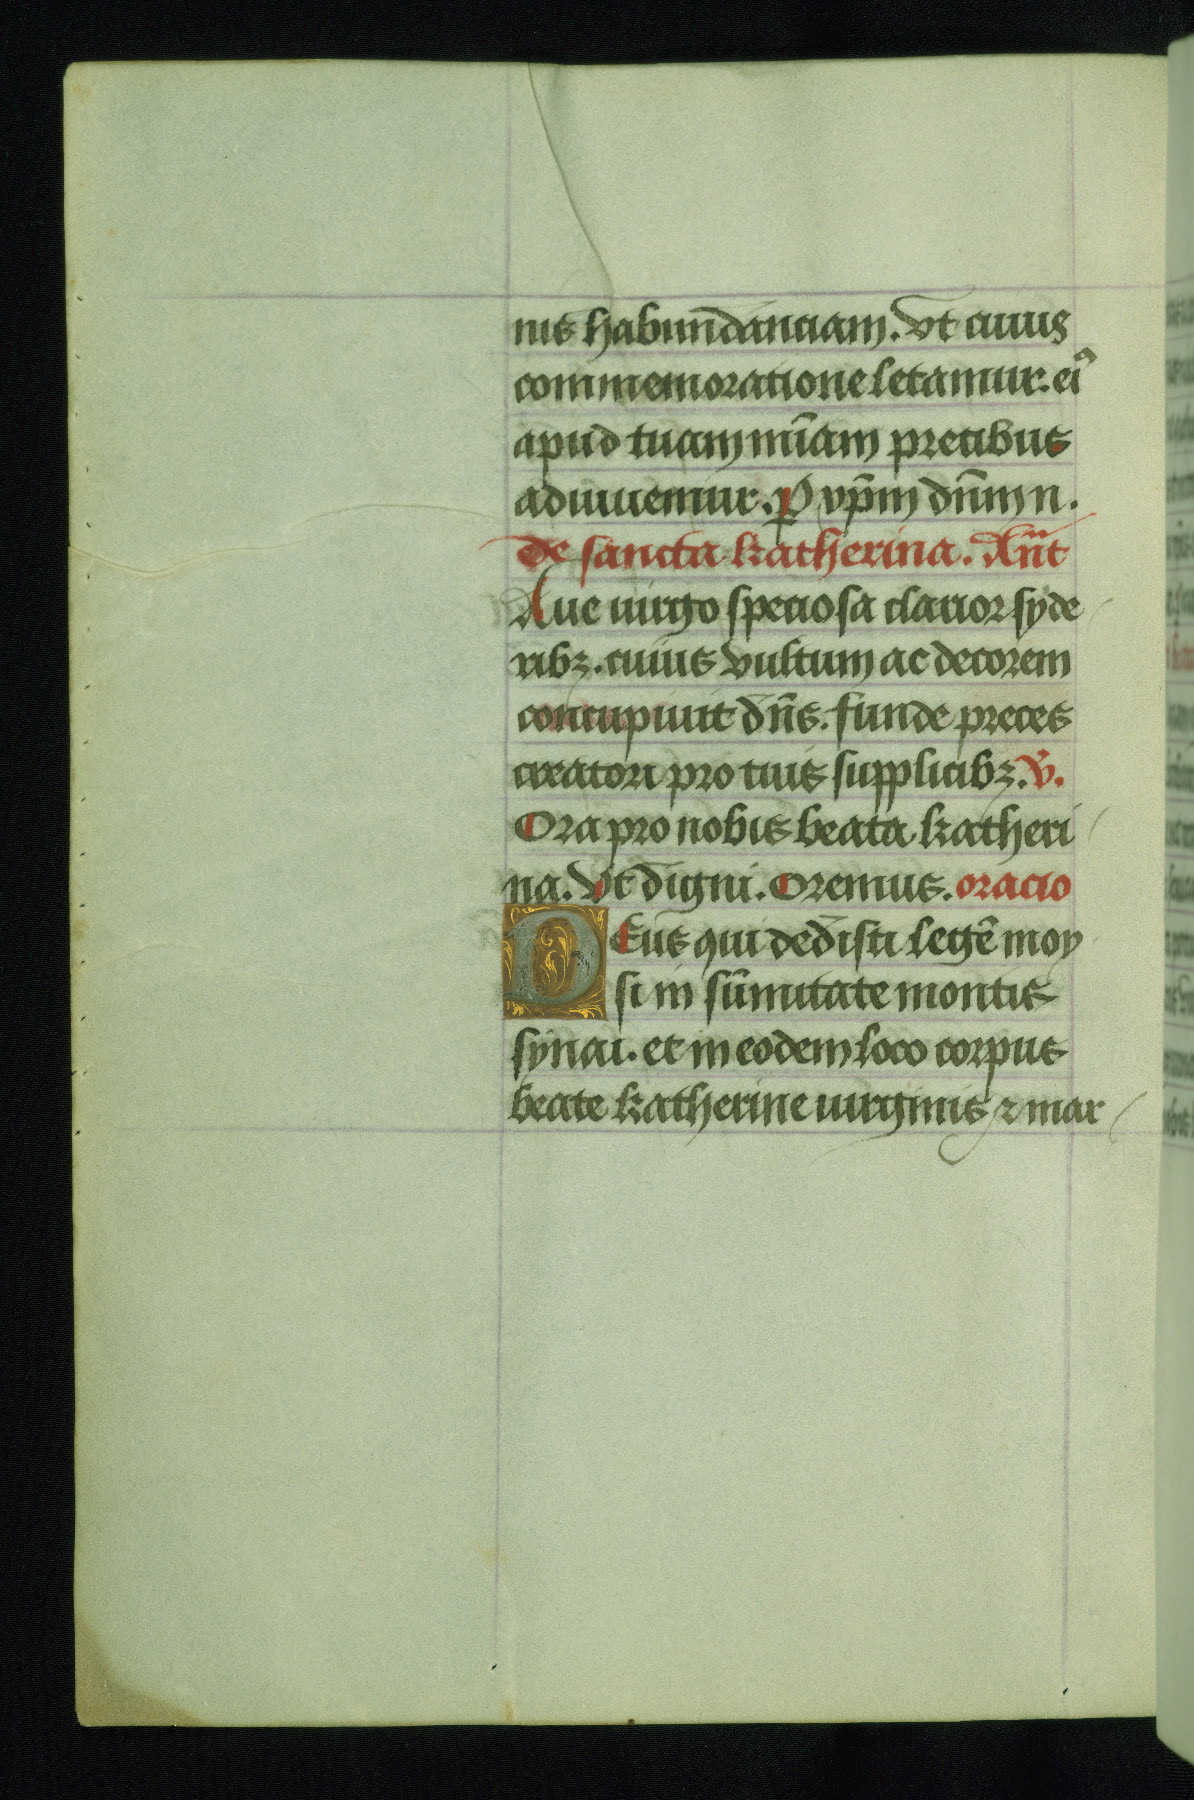 nis habundanciam. Vt cuius
commemoratione letamur. ei᷒
apud tuam mīam precibus
adiuuemur. P xp̄m dn̄m n.
De sancta katherina. Ant̄
Aue uirgo speciosa clarior syde
ribꝫ. cuius vultum ac decorem
concupiuit dn̄s. funde preces
creatori pro tuis supplicibꝫ. V̄.
Ora pro nobis beata katheri
na. Vt digni. Oremus. oracio
DEus qui dedisti legē moy
si in sūmitate montis
synai. et in eodem loco corpus
beate katherine uirginis ⁊ mar